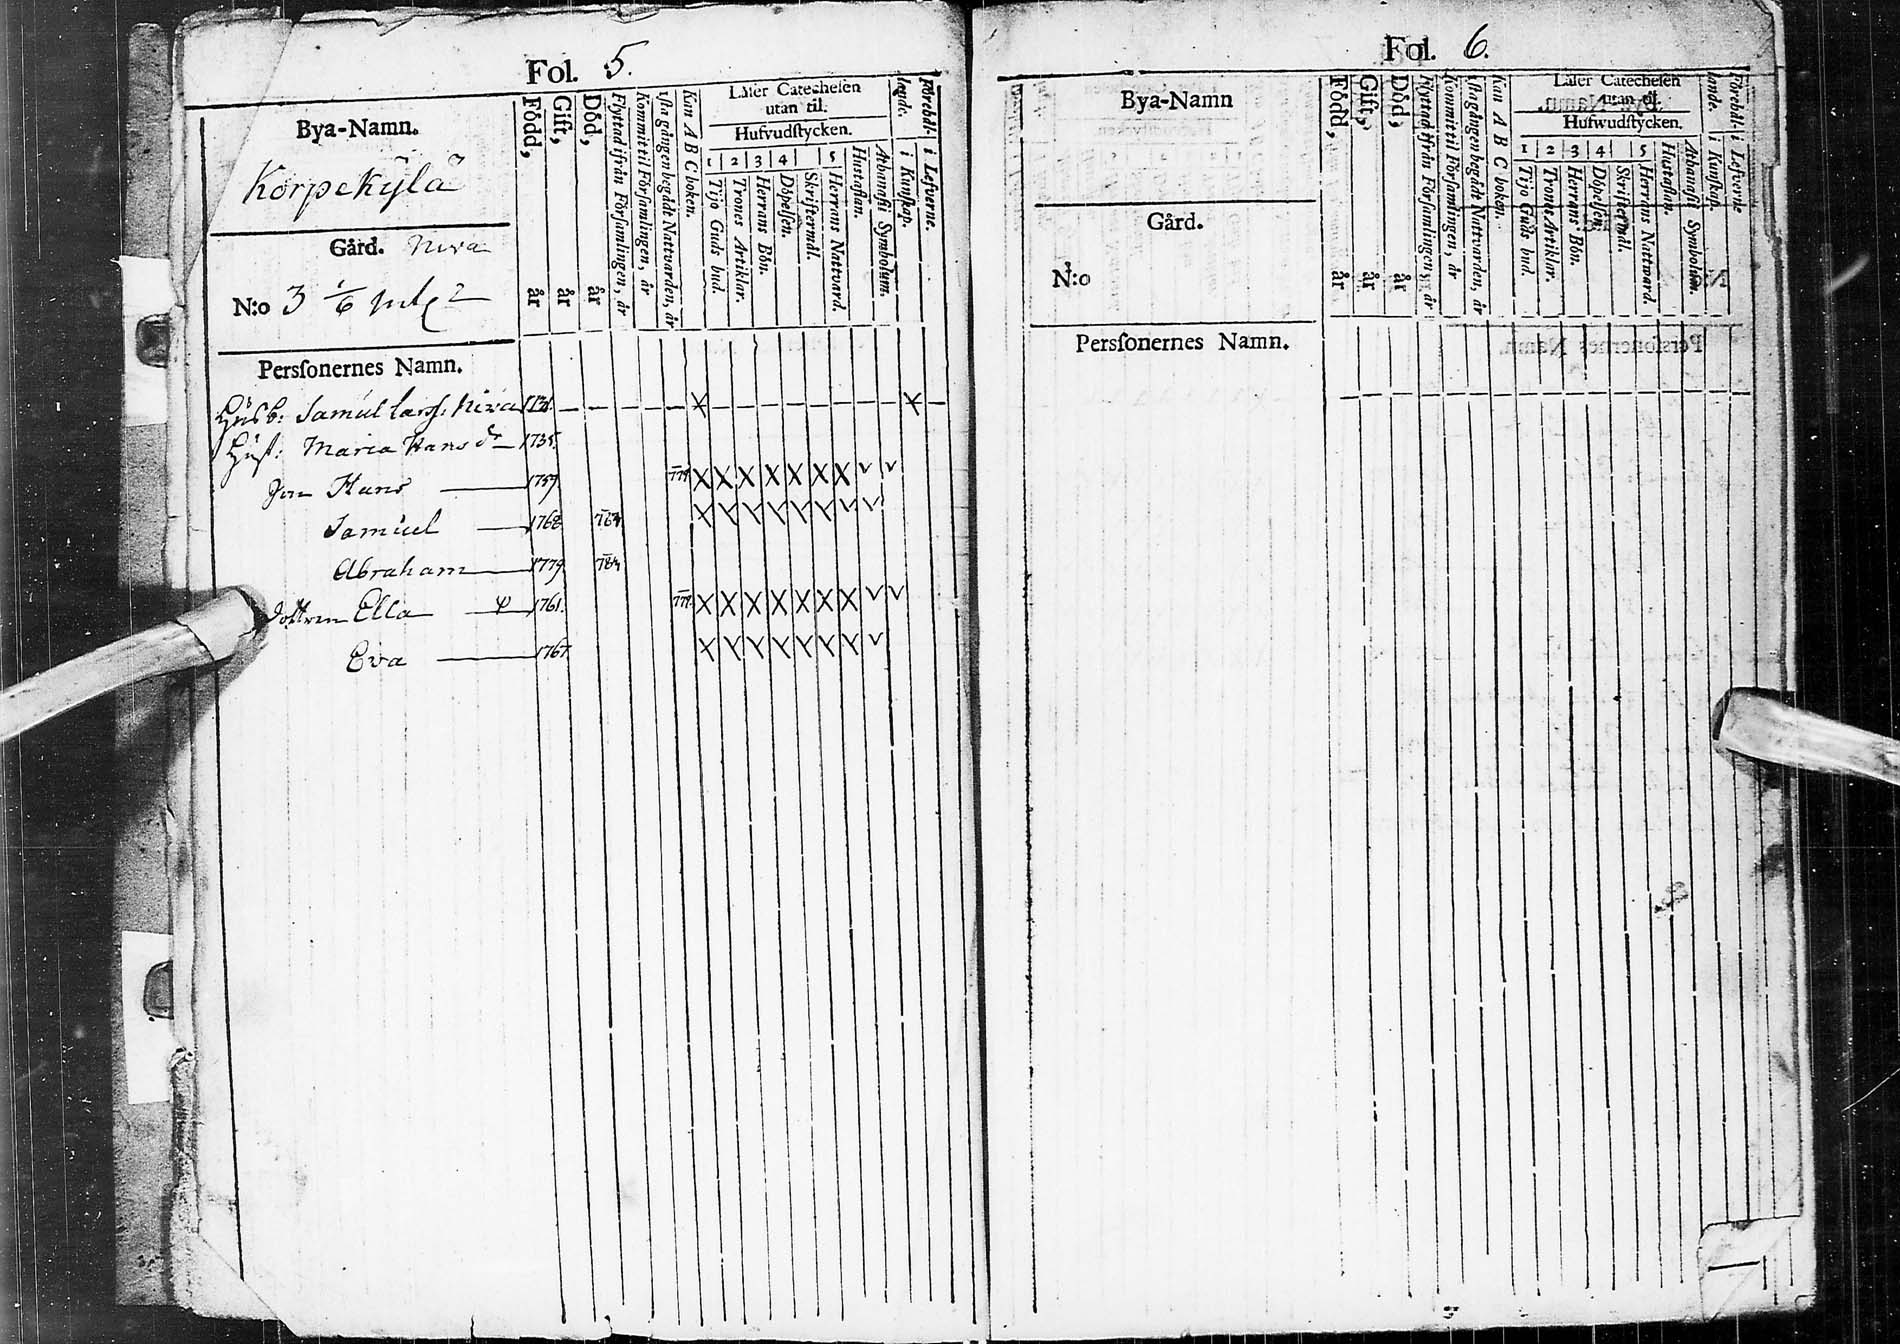 Fol. 5.
Bya-Namn.
Korpekylä
Gård. Niva
N:o 3 1/6
Född, år
Gift, år
Död, år
Flyttad ifrån Församlingen, år
Kommit til Församlingen, år
1sta gången begådt Nattvarden, år
Kan A B C boken.
Läser Catechesen
utan til.
Hufvudstycken.
1 2 3 4 5
Tijo Guds bud.
Trones Artiklar.
Herrans Bön.
Döpelsen.
Skriftermål.
Herrans Nattvard.
Hustaflan.
Athanasii Symbolum.
i Kunskap.
i Lefverne.
Perssonernes Namn.
Husb: Samuel Larss: Niva
Hust: Maria Hansdr 1735.
Son Hans 1759 779 X X X X X X X v v
Samuel 1768
Abraham 1779 784
Dottren Ella 1761. 779 X X X X X X X v v
Eva 1767
Fol. 6.
Bya-Namn
Gård.
N:o
Född, år
Gift, år
Död, år
Flyttad ifrån Församlingen, år
Kommit til Församlingen, år
1sta gången begådt Nattvarden, år
Kan A B C boken.
Läser Catechesen
utan til.
Hufwudstycken.
1 2 3 4 5
Tijo Guds bud.
Trones Artiklar.
Herrans Bön.
Döpelsen.
Skriftermål.
Herrans Nattward.
Hustaflan.
Athanasii Symbolum.
i Kunskap.
i Lefverne
Perssonernes Namn.